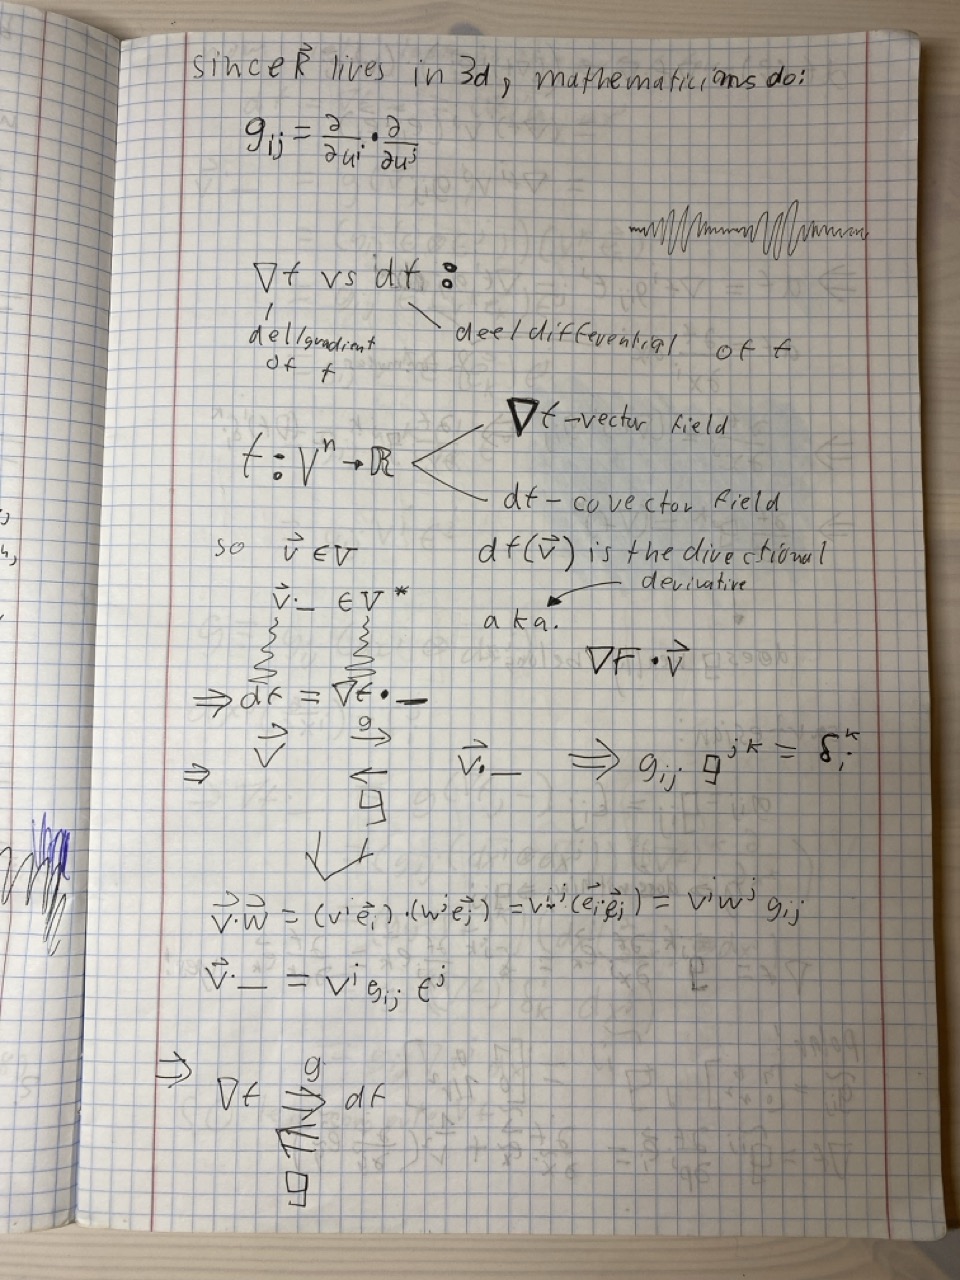 since R⃗ lives in 3d, mathematicians do:
g_ij = ∂/∂u^i · ∂/∂u^j
∇f vs df :
del/gradient of f
deel differential of f
f : V^n → ℝ
∇f – vector field
df – covector field
so v⃗ ∈ V
df(v⃗) is the directional derivative
v⃗·_ ∈ V*
aka.
∇F · v⃗
⇒ df = ∇f · _
⇒ v⃗ g → ← g v⃗·_ ⇒ g_ij g^jk = δ_i^k
v⃗·w⃗ = (v^i e⃗_i)·(w^j e⃗_j) = v^i w^j (e⃗_i·e⃗_j) = v^i w^j g_ij
v⃗·_ = v^i g_ij ϵ^j
⇒ ∇f g ⇒ df
g